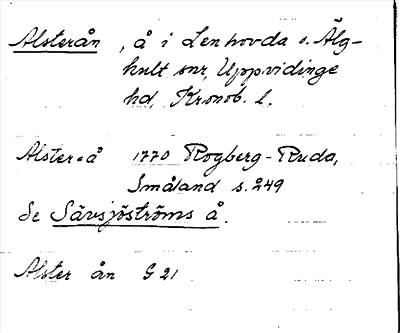 Alsterån, å i Lenhovda o. Älg-
hult snr, Uppvidinge
hd, Kronob. l.
Alster-å 1770 Rogberg-Ruda,
Småland s. 249
Se Sävsjöströms å.
Alster ån G 21